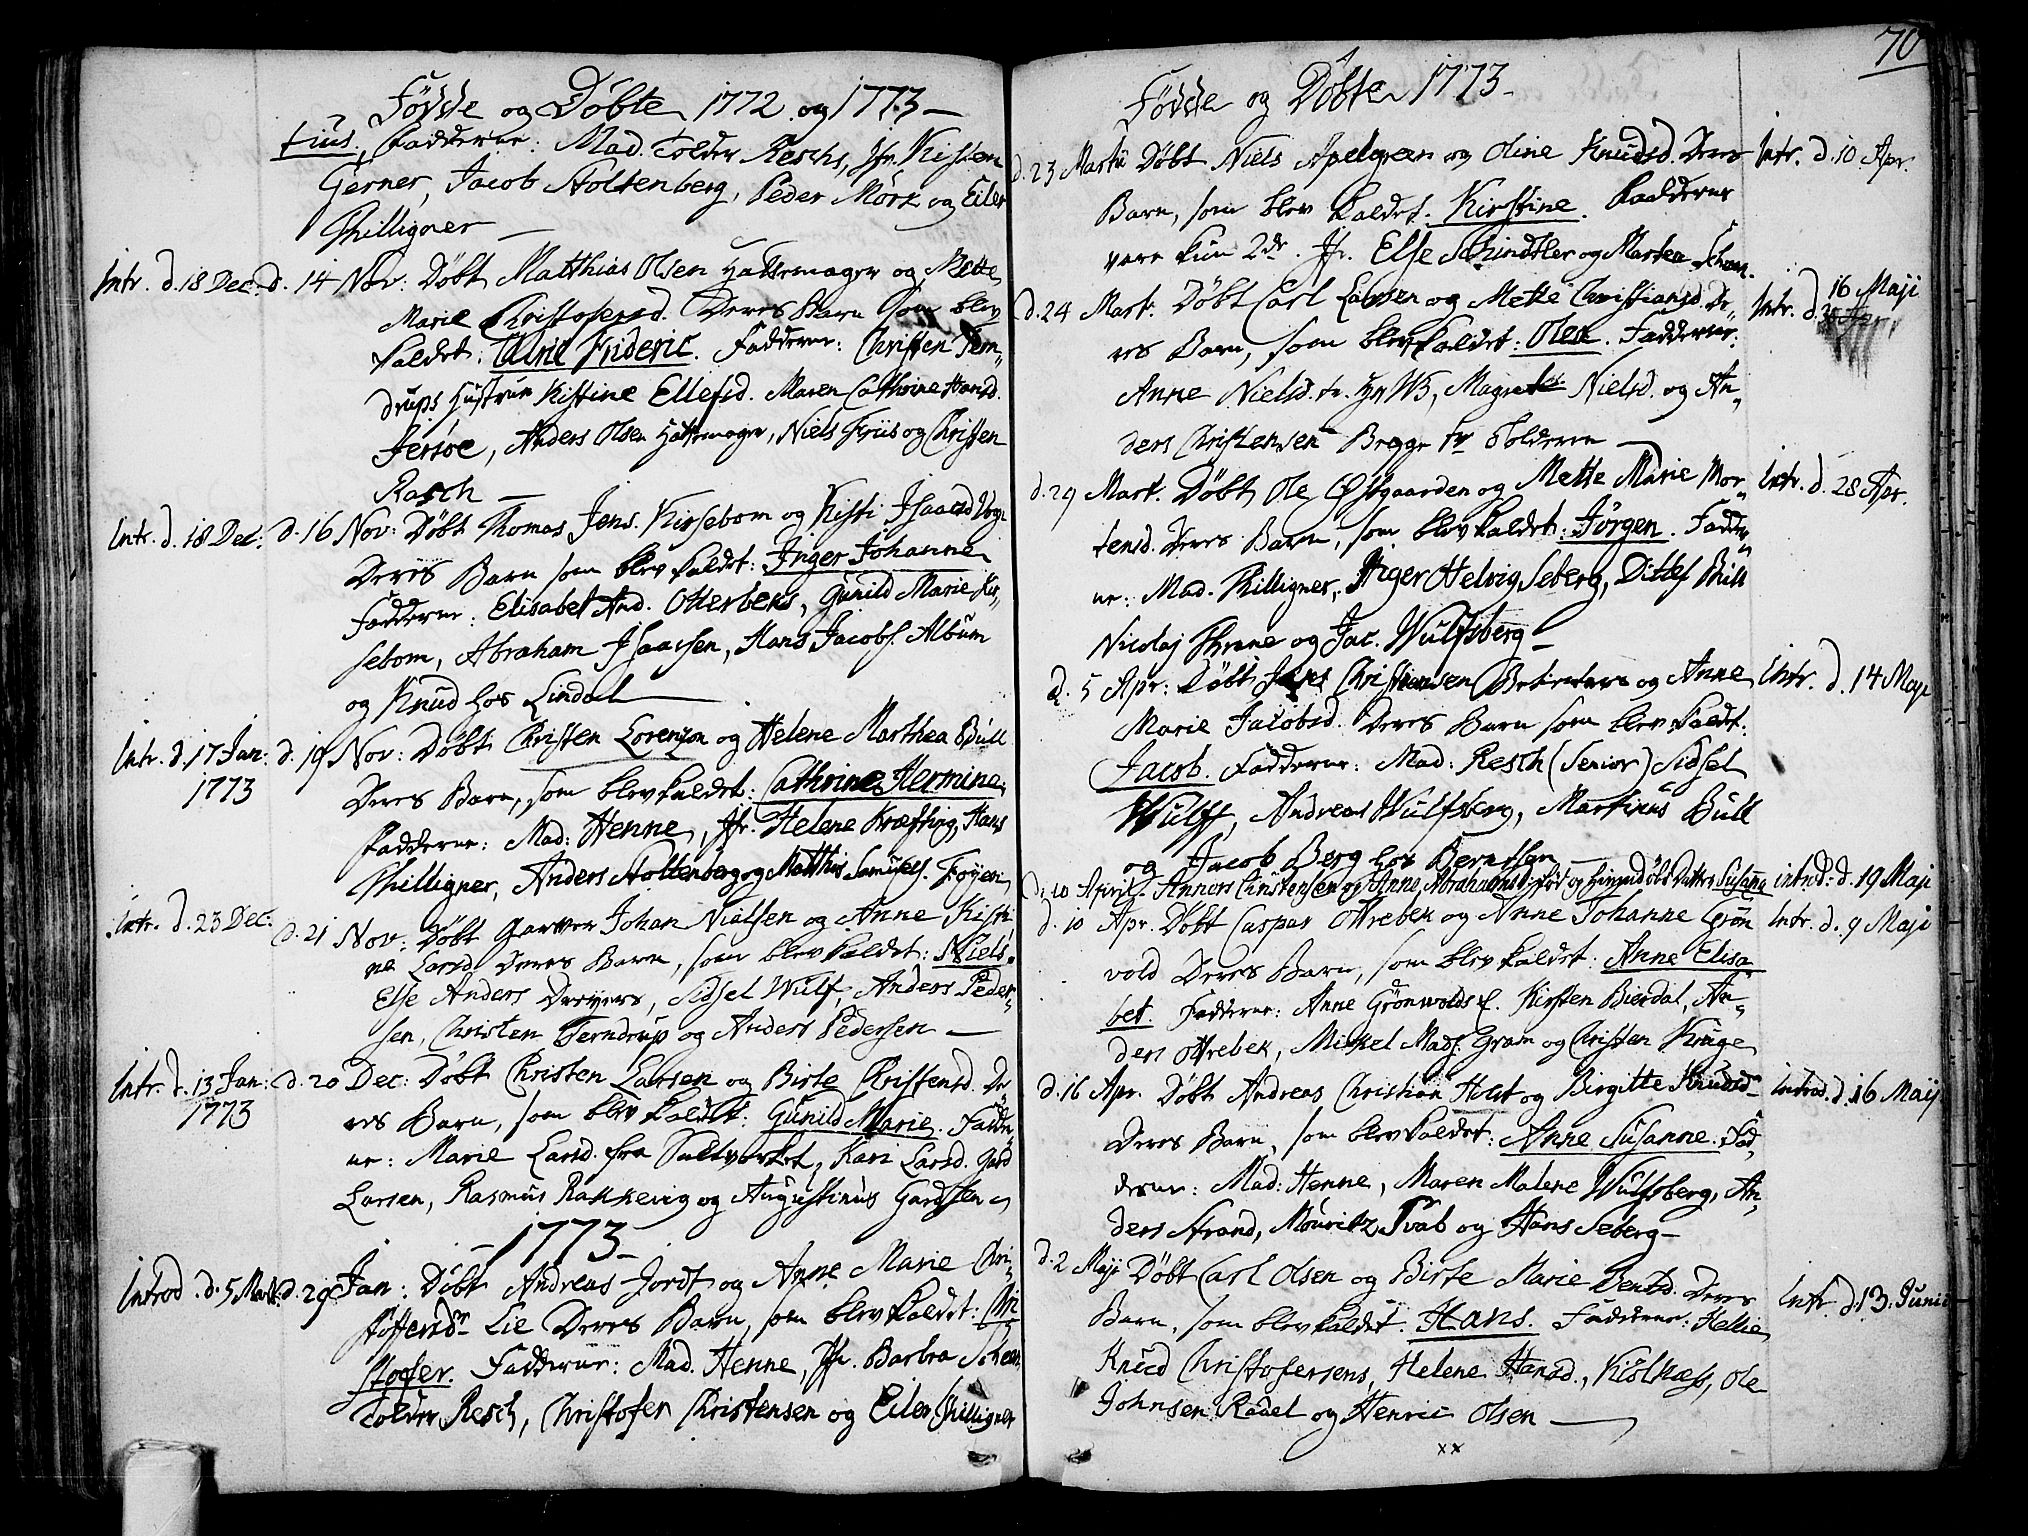 Födde og Döbte 1772 og 1773
tius, Fadderne: Mad. Tolder Reschs, Jfr. Kisten
Gerner, Jacob Stoltenberg, Peder Mörk og Eiler
Philligner
Intr. d. 18 Dec: d. 14 Nov: Döbt Matthias Olsen Hattemager og Mette
Marie Christofersd. Deres Barn som blev
kaldet: Ulric Frideric. Fadderne: Christen Tern„
drups Hustrue Kistine Ellefsd. Maren Cathrine Hansd.
Jersöe, Anders Olsen Hattemager, Niels Friis og Christen
Rasch
Intr. d. 18 Dec: d. 16 Nov: Döbt Thomas Jens. Kirsebom og Kisti Isaacsd Vogt
Deres Barn som blev kaldet: Inger Johanne
Fadderne: Elisabet And. Otterbeks, Gunild Marie Kir„
sebom, Abraham Isaacsen, Hans Jacobs. Album
og Knud hos Lindal
Intr. d. 17 Jan: d. 19 Nov: Döbt Christen Lorenzon og Helene Marthea Bull
1773 Deres Barn, som blev kaldet: Cathrine Hermine
Fadderne: Mad: Henne, Jfr. Helene Kræfting, Hans
Philligner, Anders Stoltenberg og Matthis Samuels. Foyen
Intr. d. 23 Dec: d. 21 Nov: Döbt Garver Johan Nielsen og Anne Kisti
ne Larsd. Deres Barn, som blev kaldet: Niels.
Else Anders Dreyers, Sidsel Wulf, Anders Peder„
sen, Christen Terndrup og Anders Pedersen
Intr. d. 13 Jan: d. 20 Dec: Döbt Christen Larsen og Birte Christensd. De
1773 res Barn, som blev kaldet: Gunild Marie. Fadde„
ne: Marie Larsd. fra Saltverket, Kari Larsd. Gard
Larsen, Rasmus Rakkevig og Augustinus Gardsen
1773
Introd. d. 5 Mart: d. 29 Jan: Döbt Andreas Jordt og Anne Marie Chri„
stoffersdr. Lie Deres Barn, som blev kaldet: Chri
stofer. Fadderne: Mad. Henne, Jfr. Barbra Scheen,
Tolder Resch, Christofer Christensen og Eiler Philligner
70
Födde og Döbte 1773
d. 23 Martii Döbt Niels Apelgreen og Oline Knudsd. Deres Intr. d. 10 Apr.
Barn, som blev kaldet. Kirstine. Fadderne
vare kun 2de. Jfr. Else Schindtler og Morten
d. 24 Mart: Döbt Carl Larsen og Mette Christiansd. De„ Intr. d. 16 Maji
res Barn, som blev kaldet: Olea. Fadderne:
Anne Nielsd. Magrete Nielsd. og An„
ders Christensen Begge fr Tolderen
d. 29 Mart. Döbt Ole Östgaarden og Mette Marie Mor„ Intr. d. 28 Apr.
tensd. Deres Barn, som blev kaldet: Jörgen. Fadde„
ne: Mad. Philligner, Inger Helvig Seberg, Ditlef Bull
Nicolaj Thrane og Jac. Wulfsberg
d. 5 Apr: Döbt Jens Christiansen og Anne Intr. d. 14 Maji
Marie Jacobsd. Deres Barn som blev kaldt:
Jacob. Fadderne: Mad: Resch (Senior) Sidsel
Wulff, Andreas Wulfsberg, Martinus Bull
og Jacob Berg hos Berntsen
d. 10 April. Anners Christensen og Anne Abrahamsd. föd og hiemdöbt Datter Susanne introd: d. 19 Maji
d. 10 Apr. Döbt Caspar Ottrebek og Anne Johanne Grön Intr. d. 9 Maji
vold Deres Barn, som blev kaldet: Anne Elisa
bet. Fadderne: Anne Grönwolds E. Kirsten Bierdal, An„
ders Ottrebek, Mickel Mads. Gram og Christen Kruge
d. 16 Apr. Döbt Andreas Christian Holst og Birgitte Knudsd Introd. d. 16 Maij
Deres Barn, som blev kaldet: Anne Susanne. Fad„
derne: Mad: Henne, Maren Malene Wulfsberg, An„
ders Strand, Mouritz Svab og Hans Seberg
d. 2 Maji Döbt Carl Olsen og Birte Marie Bentsd. Deres Intr. d. 13. Junii
Barn, som blev kaldet. Hans. Fadderne: Hellie
Knud Christofersens, Helene Hansd., Ole
Johnsen Radel og Henric Olsen
xx